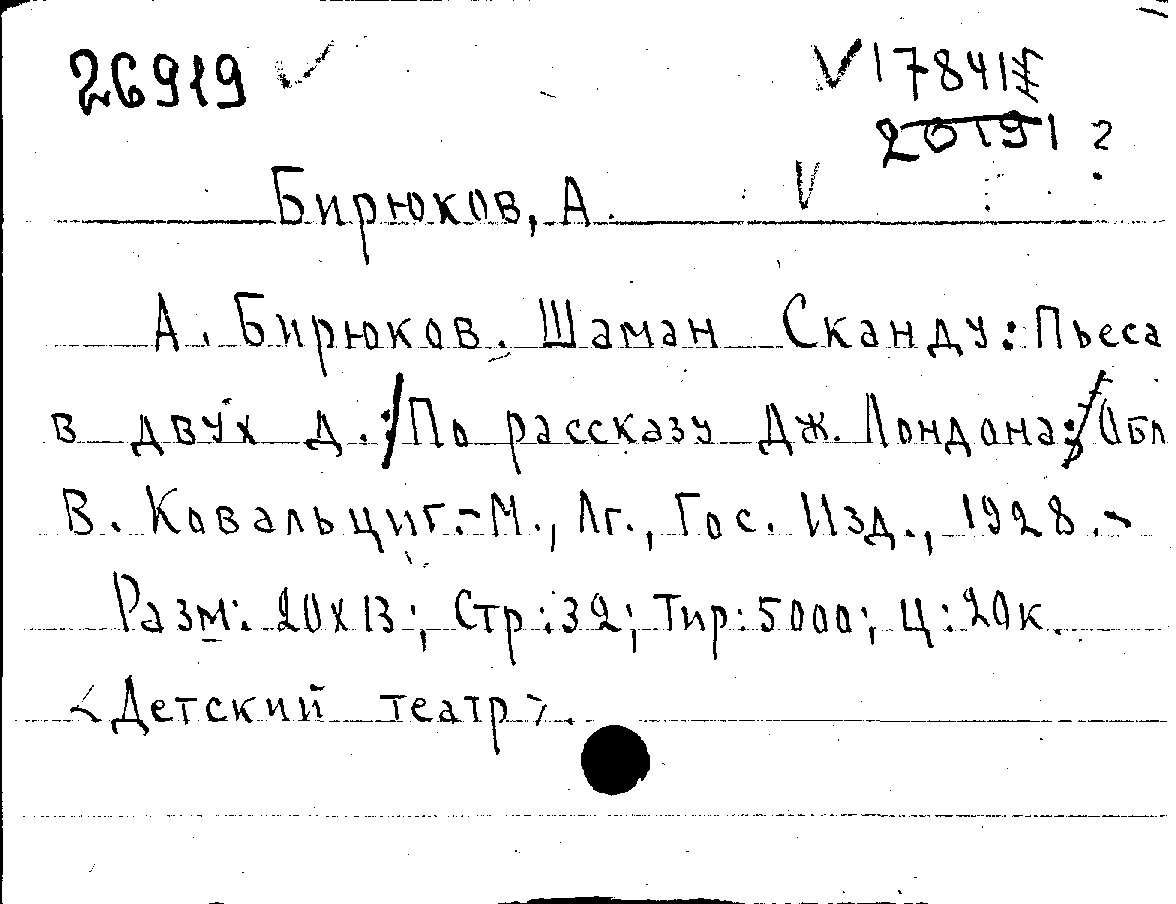 26919 V 17841
20191 ?
Бирюков, А. V
А. Бирюков. Шаман Сканду: Пьеса
в двух д.:/По рассказу Дж. Лондона:/Обл
В. Ковальциг.-М., Лг., Гос. Изд., 1928.-
Разм: 20х13; Стр:32; Тир:5000; Ц:20к.
<Детский театр>.